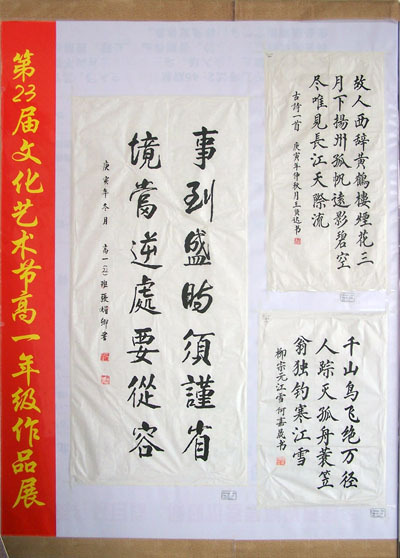 第23届文化艺术节高一年级作品展
事到盛時須謹省
境當逆處要從容
庚寅年冬月 高一 班張 卿書
故人西辞黄鶴樓煙花三
月下揚州孤帆遠影碧空
尽唯見長江天際流
古诗一首 庚寅年仲秋月王 书
千山鸟飞绝万径
人踪灭孤舟蓑笠
翁独钓寒江雪
柳宗元江雪 何嘉晟书